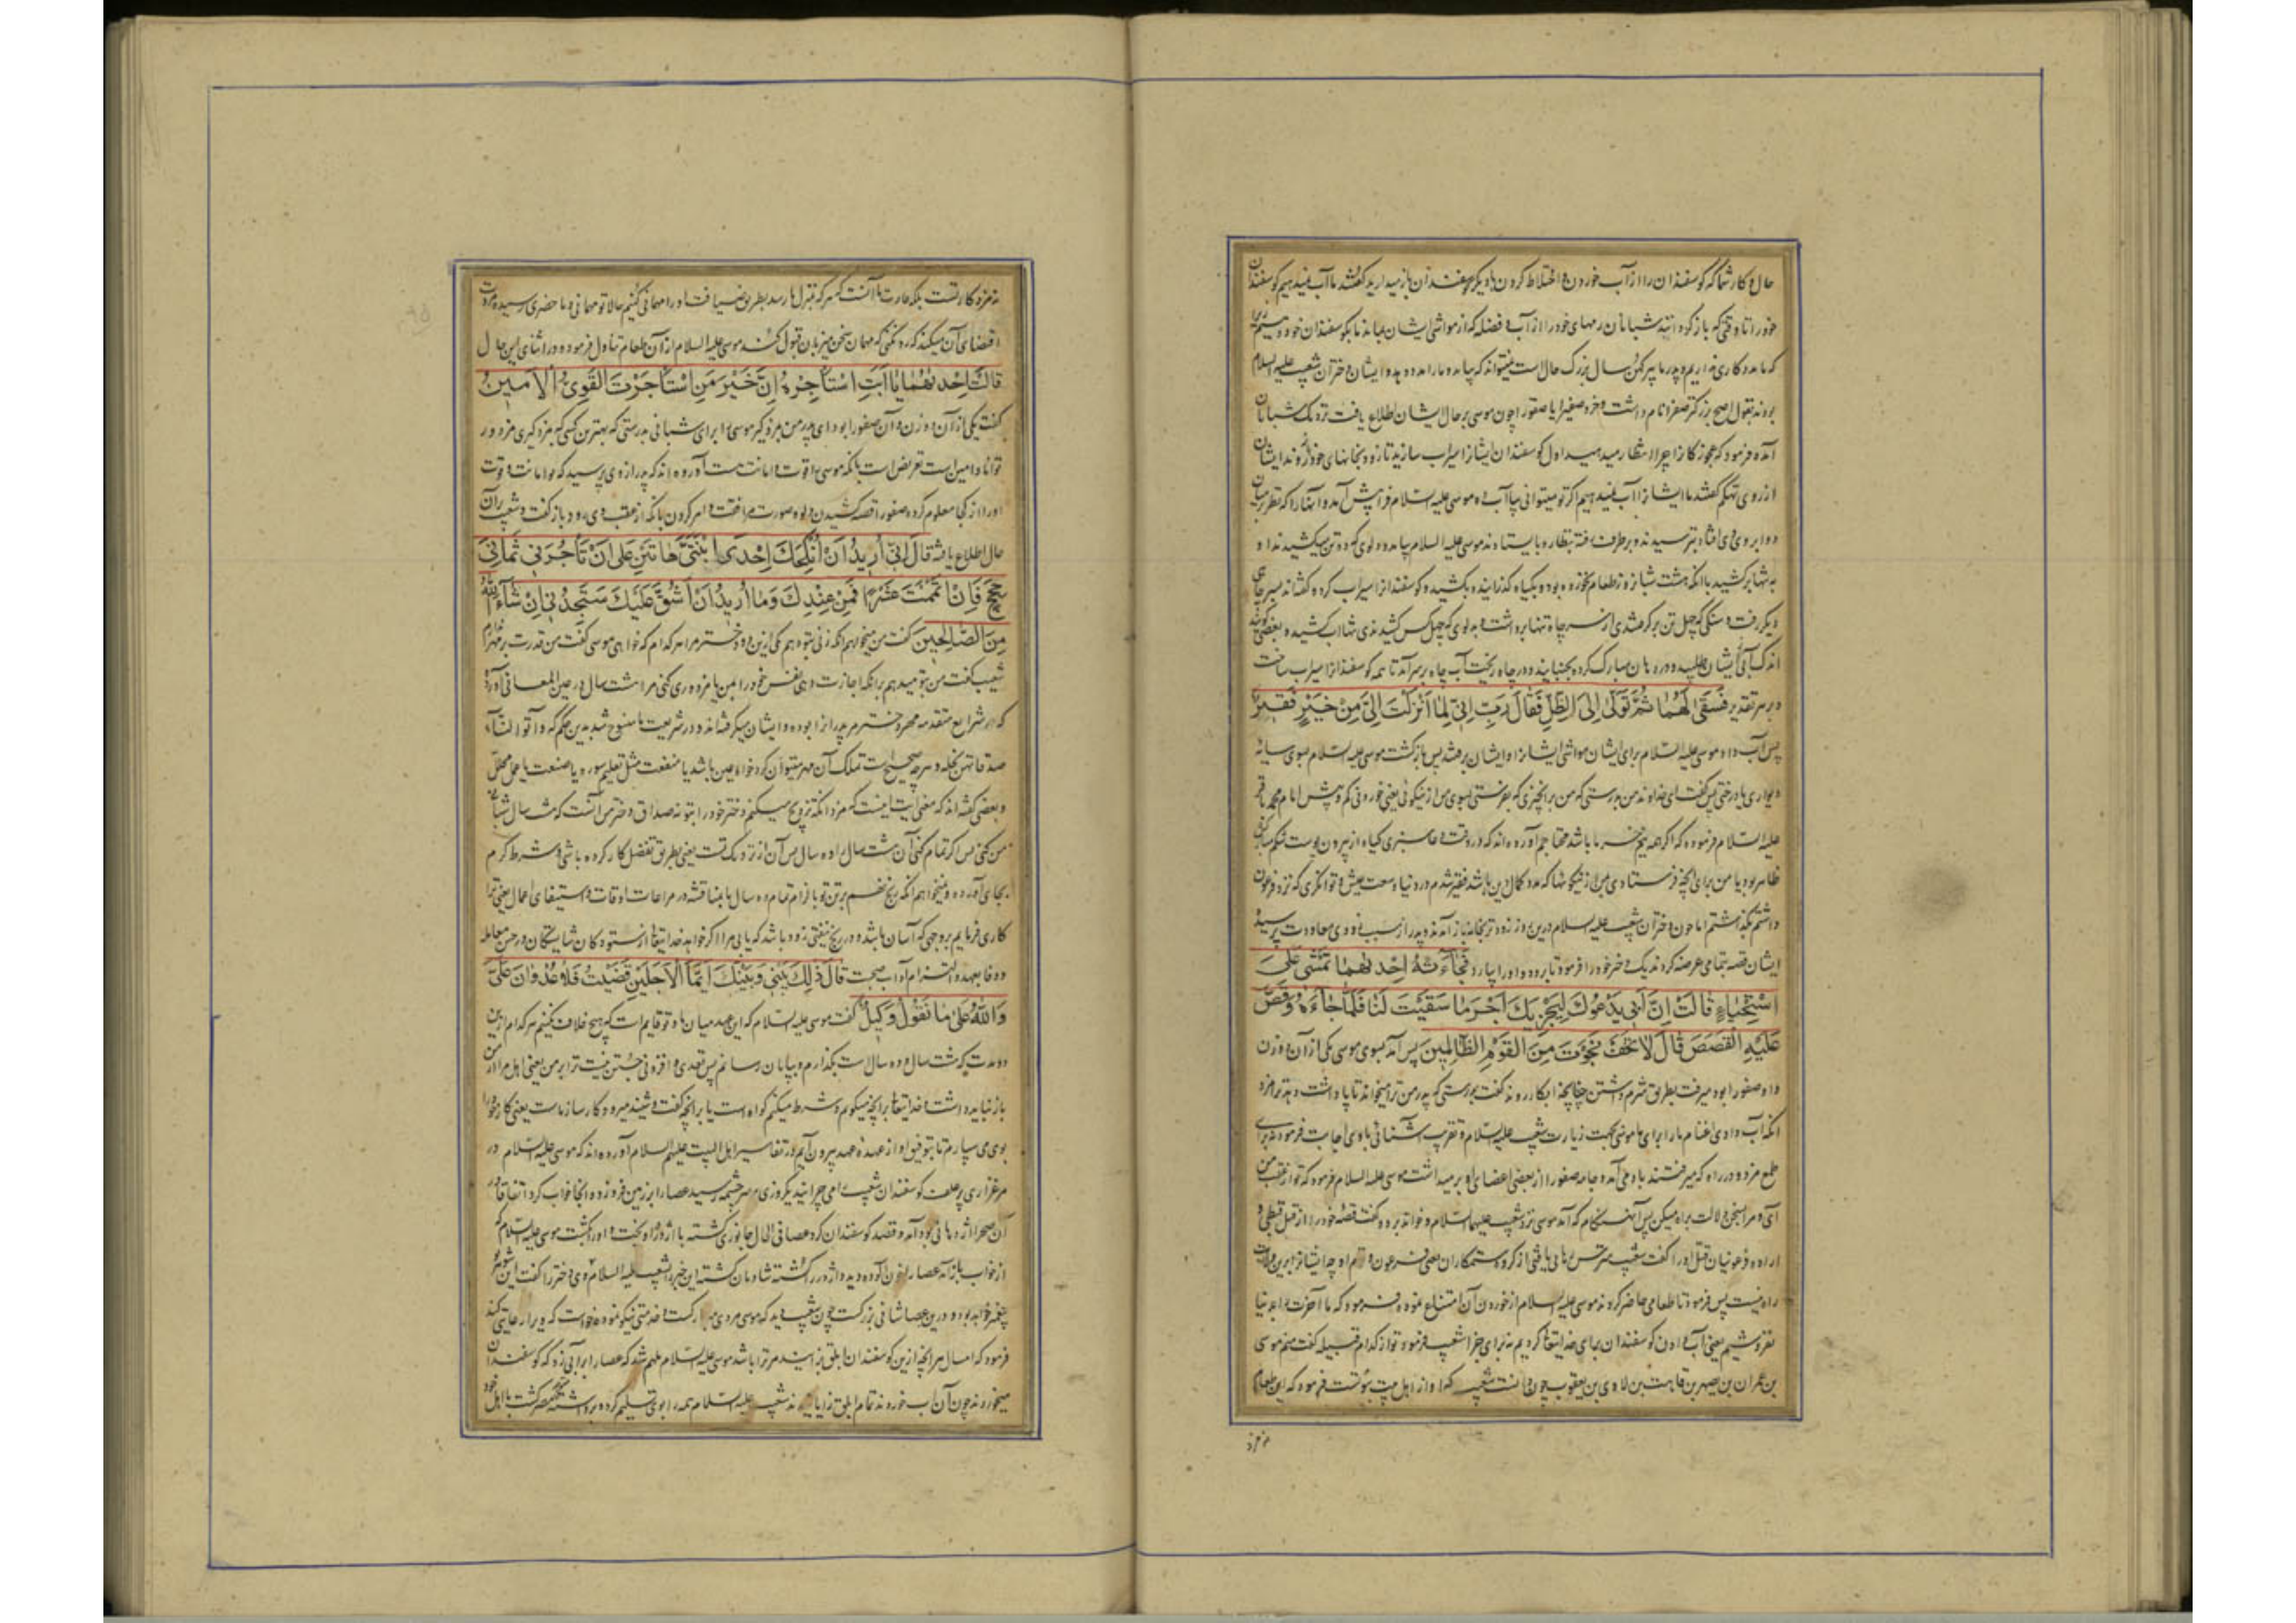 حال و کار شما که گوسفندان را از آب خوردن و اختلاط کردن با دیگر گوسفندان بازمیدارید گفتند ما آب نمیدهیم گوسفندان
خود را تا وقتی که بازگردانند شبانان رمهای خود را از آب و فضله که از مواشی ایشان بماند ما بگوسفندان خود دهیم
که ما مددکاری نداریم و پدر ما پیر کهن سال بزرگ حال است نمیتواند که بیاید و ما را مدد دهد و ایشان دختران شعیب علیه السلام
بودند بقول اصح بزرگتر صفرا نام داشت و خرد صفیرا یا صفورا چون موسی بر حال ایشان اطلاع یافت نزدیک شبانان
آمده فرمود که عجوزکان را چرا انتظار میدهید اول گوسفندان ایشان را سیراب سازید تا زود بخانهای خود روند ایشان
از روی تهکم گفتند ما ایشان را آب نمیدهیم اگر تو میتوانی بیا آب ده موسی علیه السلام فراپیش آمد و آنها را که نظر بر میان
دو ابروی وی افتاد بترسیدند و برطرف رفته بنظاره بایستادند موسی علیه السلام بیامد و دلوی که ده تن میکشیدند او
به تنها برکشید با آنکه هشت شبانروز طعام نخورده بود و بگیاه گذرانیده بکشید و گوسفندان را سیراب کرد گفته‌اند بسر چاهی
دیگر رفت و سنگی که چهل تن برگرفتندی از سر چاه تنها برداشت و بدلوی که چهل کس کشیدندی تنها آب کشید و بعضی گویند
اندک آبی از ایشان طلبیده در دهان مبارک کرد و بجنبانید و در چاه ریخت آب چاه بر سر آمد تا همه گوسفندان را سیراب ساخت
و بر هر تقدیر فَسَقَى لَهُمَا ثُمَّ تَوَلَّى إِلَى الظِّلِّ فَقَالَ رَبِّ إِنِّي لِمَا أَنْزَلْتَ إِلَيَّ مِنْ خَيْرٍ فَقِيرٌ
پس آب داد موسی علیه السلام برای ایشان مواشی ایشان را و ایشان برفتند پس بازگشت موسی علیه السلام بسوی سایه
دیواری یا درختی پس گفت ای خداوند من بدرستی که من برانچیزی که بفرستی بسوی من از نیکوئی یعنی خوردنی کم و بیش امام محمد باقر
علیه السلام فرموده که اگر همه نیم خرما باشد محتاجم آورده‌اند که در وقت دعا سبزی گیاه از بیرون پوست شکم
ظاهر بود یا من برای آنچه فرستادی بمن از نیکوئیها که مدد کمال دین باشد فقیر شدم در دنیا و سعت عیش و توانگری که نزد فرعون
داشتم بگذاشتم اما چون دختران شعیب علیه السلام درین روز زودتر بخانه باز آمدند پدر از سبب زودی معاودت پرسید
ایشان قصه بتمامی عرضه کردند یک دختر خود را فرمود تا برود و او را بیارد فَجَاءَتْهُ إِحْدَاهُمَا تَمْشِي عَلَى
اسْتِحْيَاءٍ قَالَتْ إِنَّ أَبِي يَدْعُوكَ لِيَجْزِيَكَ أَجْرَ مَا سَقَيْتَ لَنَا فَلَمَّا جَاءَهُ وَقَصَّ
عَلَيْهِ الْقَصَصَ قَالَ لَا تَخَفْ نَجَوْتَ مِنَ الْقَوْمِ الظَّالِمِينَ پس آمد بسوی موسی یکی از آن دو زن
و او صفورا بود میرفت بطریق شرم داشتن چنانچه ابکار روند گفت بدرستی که پدر من ترا میخواند تا پاداشت دهد ترا مزد
آنکه آب دادی اغنام ما را برای ما موسی بجهت زیارت شعیب علیه السلام و تقریب آشنائی با وی اجابت فرمود نه برای
طمع مزد و در راه که میرفتند باد می‌آمد و جامه صفورا از بعضی اعضای او برمیداشت موسی علیه السلام فرمود که تو از عقب من
آی و مرا بسخن دلالت براه میکن پس آنهنگام که آمد موسی نزد شعیب علیهما السلام و خواند برو و گفت قصه خود را از قتل قبطی و
اراده فرعونیان قتل او را گفت شعیب مترس رهائی یافتی از گروه ستمکاران یعنی فرعون و قوم او چه ایشان را برین ولایت
راه نیست پس فرمود تا طعامی حاضر کردند موسی علیه السلام از خوردن آن امتناع نموده فرمود که ما آخرت را بدنیا
نفروشیم یعنی آب دادن گوسفندان برای خدایتعالی کردیم نه برای جزا شعیب فرمود تو از کدام قبیله گفت منم موسی
بن عمران بن یصهر بن قاهث بن لاوی بن یعقوب چون دانست شعیب که او از اهل بیت نبوتست فرمود که این طعام
نه مزد
نه مزد کار تست بلکه عادت ما آنست که هر که بمنزل ما رسد بطریق ضیافت او را مهمانی کنیم حالا تو مهمانی و ما حضری رسیده مروت
اقتضای آن میکند که رد نکنی که مهمان سخن میزبان قبول کند موسی علیه السلام از آن طعام تناول فرمود و در اثنای این حال
قَالَتْ إِحْدَاهُمَا يَا أَبَتِ اسْتَأْجِرْهُ إِنَّ خَيْرَ مَنِ اسْتَأْجَرْتَ الْقَوِيُّ الْأَمِينُ
گفت یکی از آن دو زن و آن صفورا بود ای پدر من بمزد گیر موسی را برای شبانی بدرستی که بهترین کسی که بمزد گیری مزدور
توانا و امین است تعریض است بآنکه موسی را قوت و امانت هست آورده‌اند که پدر از وی پرسید که تو امانت و قوت
او را از کجا معلوم کرده صفورا قصه کشیدن دلو و صورت مرافقت و امر کردن بآنکه از عقب وی رود بازگفت و شعیب بران
حال اطلاع یافته قَالَ إِنِّي أُرِيدُ أَنْ أُنْكِحَكَ إِحْدَى ابْنَتَيَّ هَاتَيْنِ عَلَى أَنْ تَأْجُرَنِي ثَمَانِيَ
حِجَجٍ فَإِنْ أَتْمَمْتَ عَشْرًا فَمِنْ عِنْدِكَ وَمَا أُرِيدُ أَنْ أَشُقَّ عَلَيْكَ سَتَجِدُنِي إِنْ شَاءَ اللَّهُ
مِنَ الصَّالِحِينَ گفت من میخواهم آنکه زنی بتو دهم یکی ازین دو دختر مرا هر کدام که خواهی موسی گفت من قدرت بر مهر ندارم
شعیب گفت من بتو میدهم برانکه اجازت دهی نفس خود را بمن یا مزدوری کنی مرا هشت سال و در عین المعانی آورده
که در شرایع متقدمه مهر دختر مر پدر انرا بوده و ایشان میگرفته‌اند و در شریعت ما منسوخ شد بدین حکم که وآتوا النساء
صدقاتهن نحلة و هر چه صحیح است تملک آن مهر میتوان کرد خواه عین باشد یا منفعت مثل تعلیم سوره یا صنعت یا عمل محلل
و بعضی گفته‌اند که معنی آیت اینست که مزد آنکه تزویج میکنم دختر خود را بتو نه صداق دختر من آنست که هشت سال شبانی
من کنی پس اگر تمام کنی آن هشت سال را ده سال پس آن از نزدیک تست یعنی بطریق تفضل کار کرده باشی و شرط کرم
بجای آورده و نمیخواهم آنکه رنج نهم بر تن تو بالزام تمام ده سال یا بمناقشه در مراعات اوقات و استیفای اعمال یعنی ترا
کاری فرمایم بر وجهی که آسان باشد و در رنج نیفتی زود باشد که یابی مرا اگر خواهد خدایتعالی از ستودگان شایستگان در حسن معامله
و وفا بعهد و التزام آداب صحبت قَالَ ذَلِكَ بَيْنِي وَبَيْنَكَ أَيَّمَا الْأَجَلَيْنِ قَضَيْتُ فَلَا عُدْوَانَ عَلَيَّ
وَاللَّهُ عَلَى مَا نَقُولُ وَكِيلٌ گفت موسی علیه السلام که این عهد میان ما و تو قایم است که هیچ خلاف نکنیم هر کدام ازین
دو مدت که هشت سال و ده سال است بگذارم و بپایان رسانم پس تعدی و افزونی جستن نیست ترا بر من یعنی اهل مرا از من
باز نباید داشت و خدایتعالی برانچه میگویم و شرط میکنم گواه است یا برانچه گفت و شنید میرود کارساز ماست یعنی کار خود را
بوی می سپارم تا بتوفیق او از عهده عهد بیرون آیم در تفاسیر اهل البیت علیهم السلام آورده‌اند که موسی علیه السلام در
مرغزاری پر علف گوسفندان شعیب را می چرانید یکروزی بسر چشمه رسید عصا را بر زمین فرو زده آنجا خواب کرد اتفاقا در
آن صحرا اژدهائی بود آمد و قصد گوسفندان کرد عصا فی الحال جانوری گشته با اژدها درآویخت و او را بکشت موسی علیه السلام که
از خواب بازآمد عصا را خون آلوده دید و اژدر را کشته شادمان گشته این خبر را بشعیب علیه السلام برد وی دختر را گفت این شوهر تو
پیغمبر خواهد بود و درین عصا شانی بزرگست چون شعیب دید که موسی مردی مبارکست و خدمتی نیکو نموده خواست که ویرا رعایتی کند
فرمود که امسال هر انچه ازین گوسفندان ابلق زایند مر ترا باشد موسی علیه السلام ملهم شد که عصا را بر آبی زد که گوسفندان
میخوردند چون آن آب خوردند تمام ابلق زائیدند شعیب علیه السلام همه را بوی تسلیم کرده و برداشته متوجه مصر گشت با اهل خود